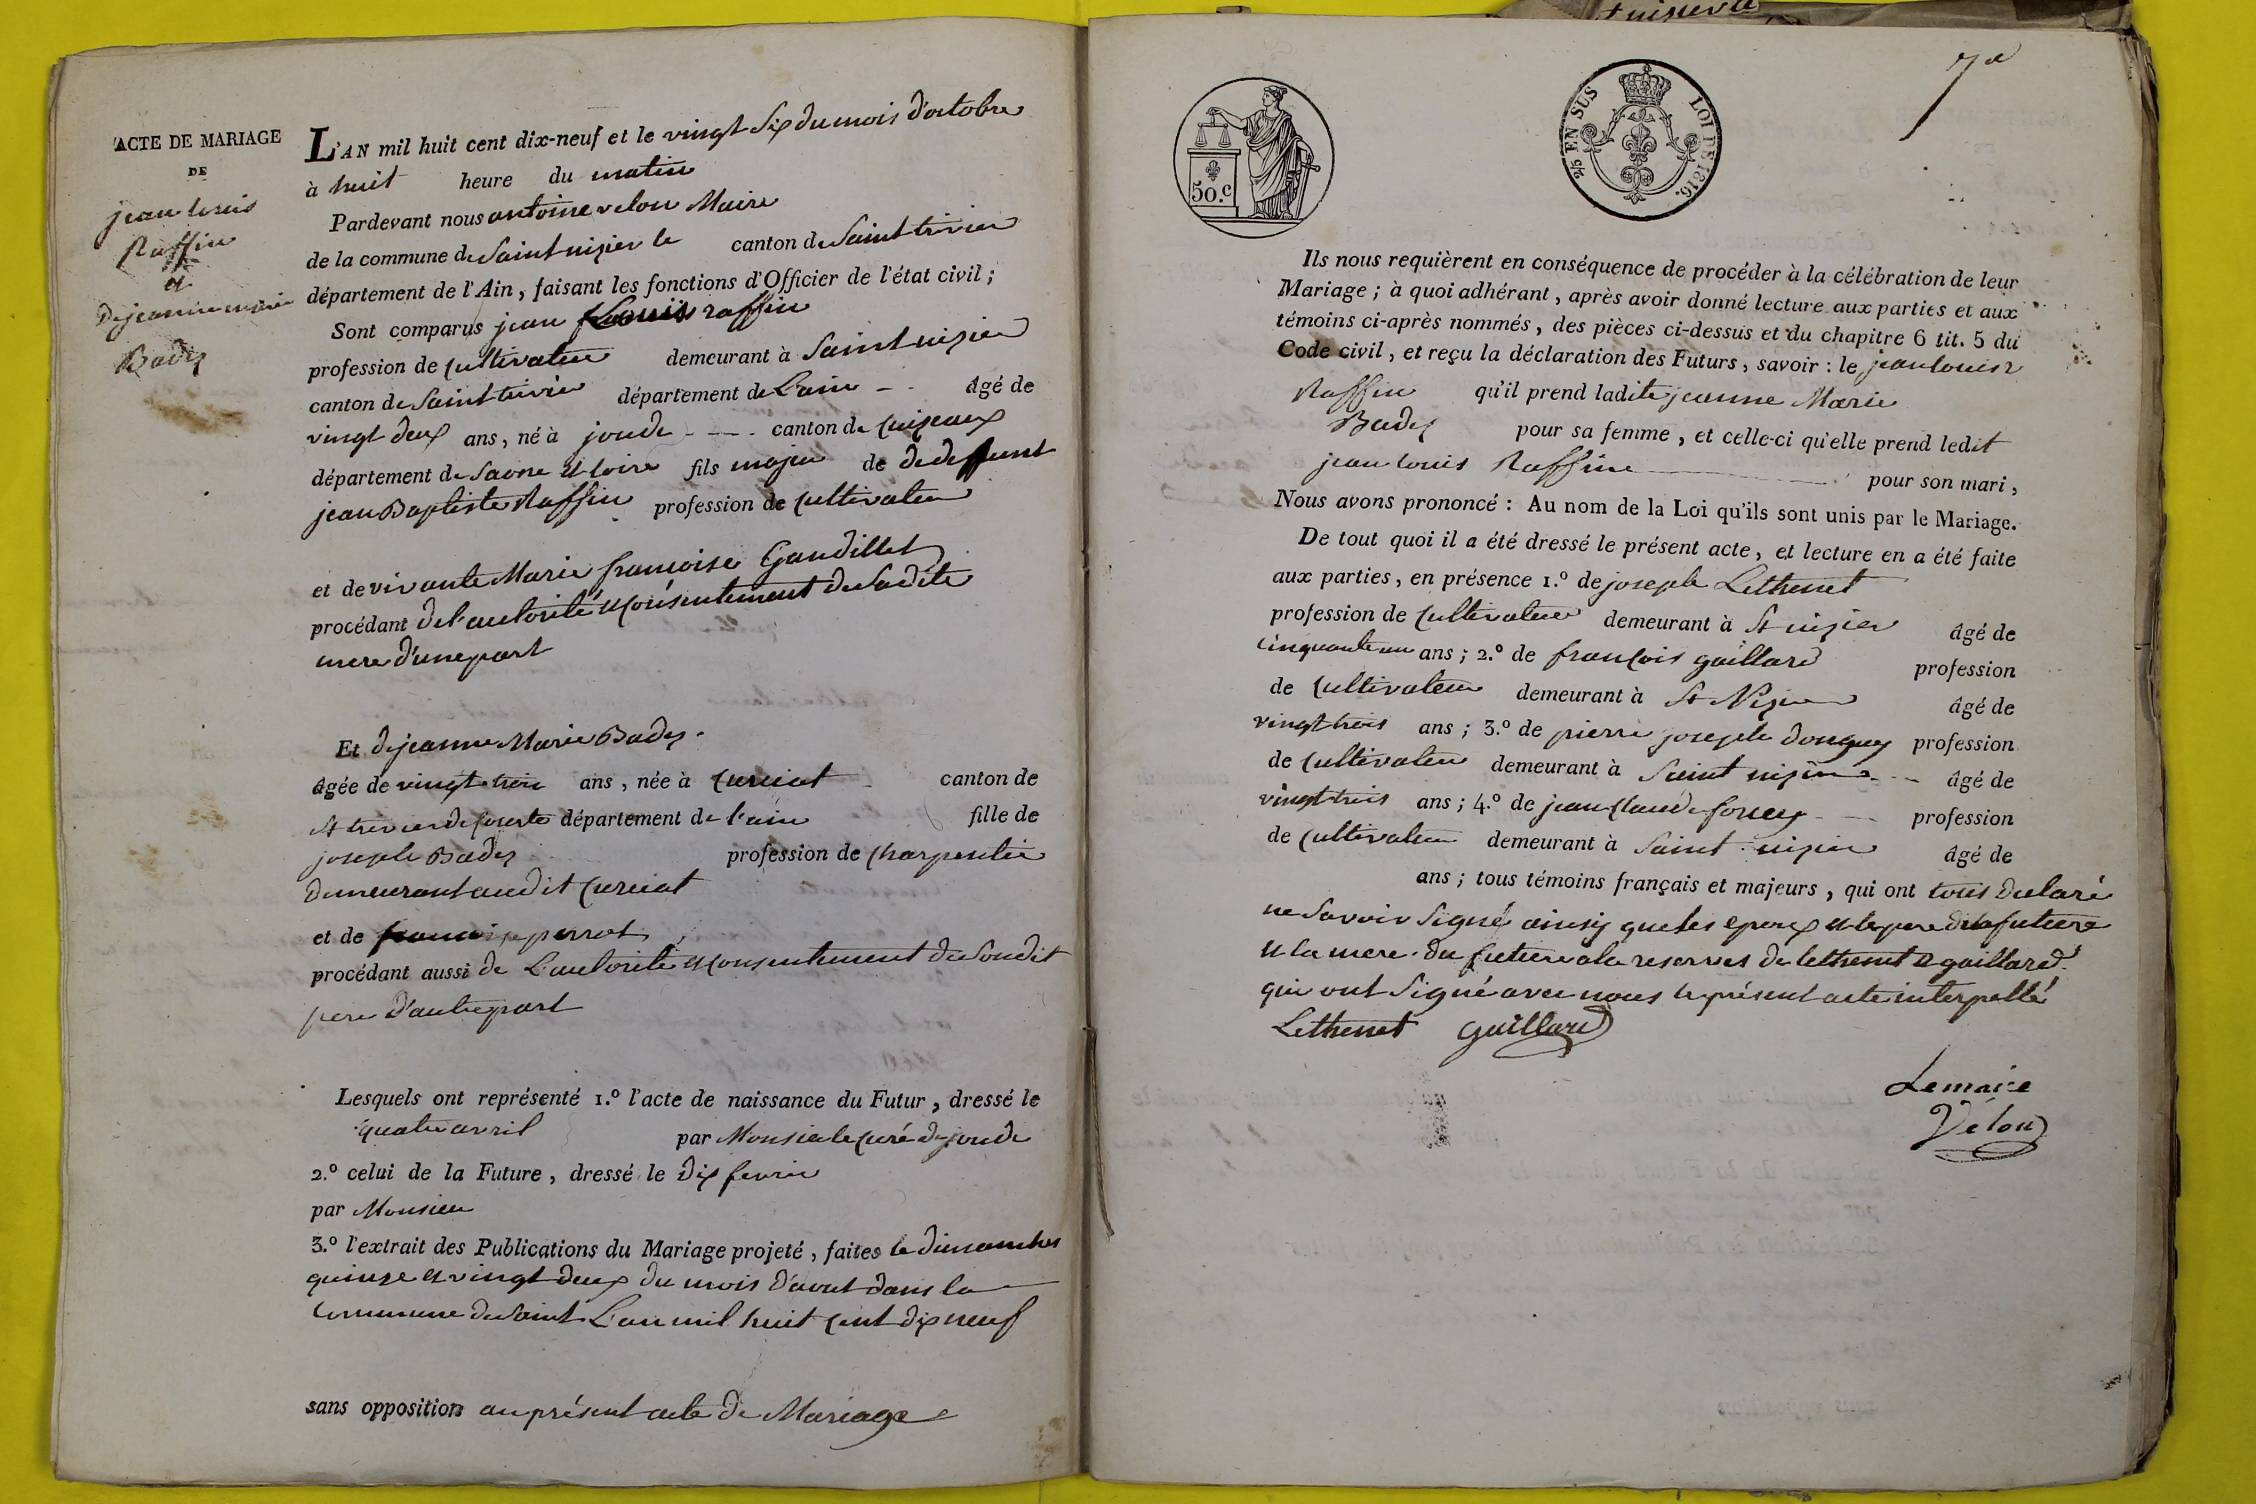 ACTE DE MARIAGE
DE
jean louis
Raffin
et
de jeanne marie
Badez
L'AN mil huit cent dix-neuf et le vingt six du mois d'octobre
à huit heure du matin
Pardevant nous antoine velon Maire
de la commune de Saint nizier le canton de Saint trivier
département de l'Ain, faisant les fonctions d'Officier de l'état civil;
Sont comparus jean Louis raffin
profession de Cultivateur demeurant à Saint nizier
canton de Saint trivier département de Lain âgé de
vingt deux ans, né à joude canton de Cuiseaux
département de Saone et loire fils majeur de de deffunt
jean Baptiste Raffin profession de Cultivateur
et de vivante Marie françoise Gandillet
procédant de l'autorité et Consentement de Sadite
mere d'une part
Et de jeanne Marie Badez
âgée de vingt trois ans, née à Curciat canton de
St trivier de Courte département de l'ain fille de
joseph Badez profession de Charpentier
demeurant audit Curciat
et de francoise perret
procédant aussi de L'autorité et Consentement de Soudit
pere d'autre part
Lesquels ont représenté 1.º l'acte de naissance du Futur, dressé le
quatre avril par Monsieur le Curé de joude
2.º celui de la Future, dressé le dix fevrier
par Monsieur
3.º l'extrait des Publications du Mariage projeté, faites le dimanches
quinze et vingt deux du mois d'aout dans la
Commune de Saint L'an mil huit Cent dix neuf
sans opposition au présent acte de Mariage
50.c
2/5 EN SUS LOI DE 1816.
7e
Ils nous requièrent en conséquence de procéder à la célébration de leur
Mariage; à quoi adhérant, après avoir donné lecture aux parties et aux
témoins ci-après nommés, des pièces ci-dessus et du chapitre 6 tit. 5 du
Code civil, et reçu la déclaration des Futurs, savoir: le jean louis
Raffin qu'il prend ladite jeanne Marie
Badez pour sa femme, et celle-ci qu'elle prend ledit
jean louis Raffin pour son mari,
Nous avons prononcé: Au nom de la Loi qu'ils sont unis par le Mariage.
De tout quoi il a été dressé le présent acte, et lecture en a été faite
aux parties, en présence 1.º de joseph Lethenet
profession de Cultivateur demeurant à St nizier âgé de
Cinquante un ans; 2.º de francois gaillard profession
de Cultivateur demeurant à St Nizier âgé de
vingt trois ans; 3.º de pierre joseph donguy profession
de Cultivateur demeurant à Saint nizier âgé de
vingt trois ans; 4.º de jean Claude forey profession
de Cultivateur demeurant à Saint nizier âgé de
ans; tous témoins français et majeurs, qui ont tous declaré
ne Savoir Signé ainsiy que les epoux et le pere de la future
et la mere du future a la reserves de lethenet et gaillard
qui ont Signé avec nous le présent acte interpellé
Lethenet Gaillard
Lemaire
Velon